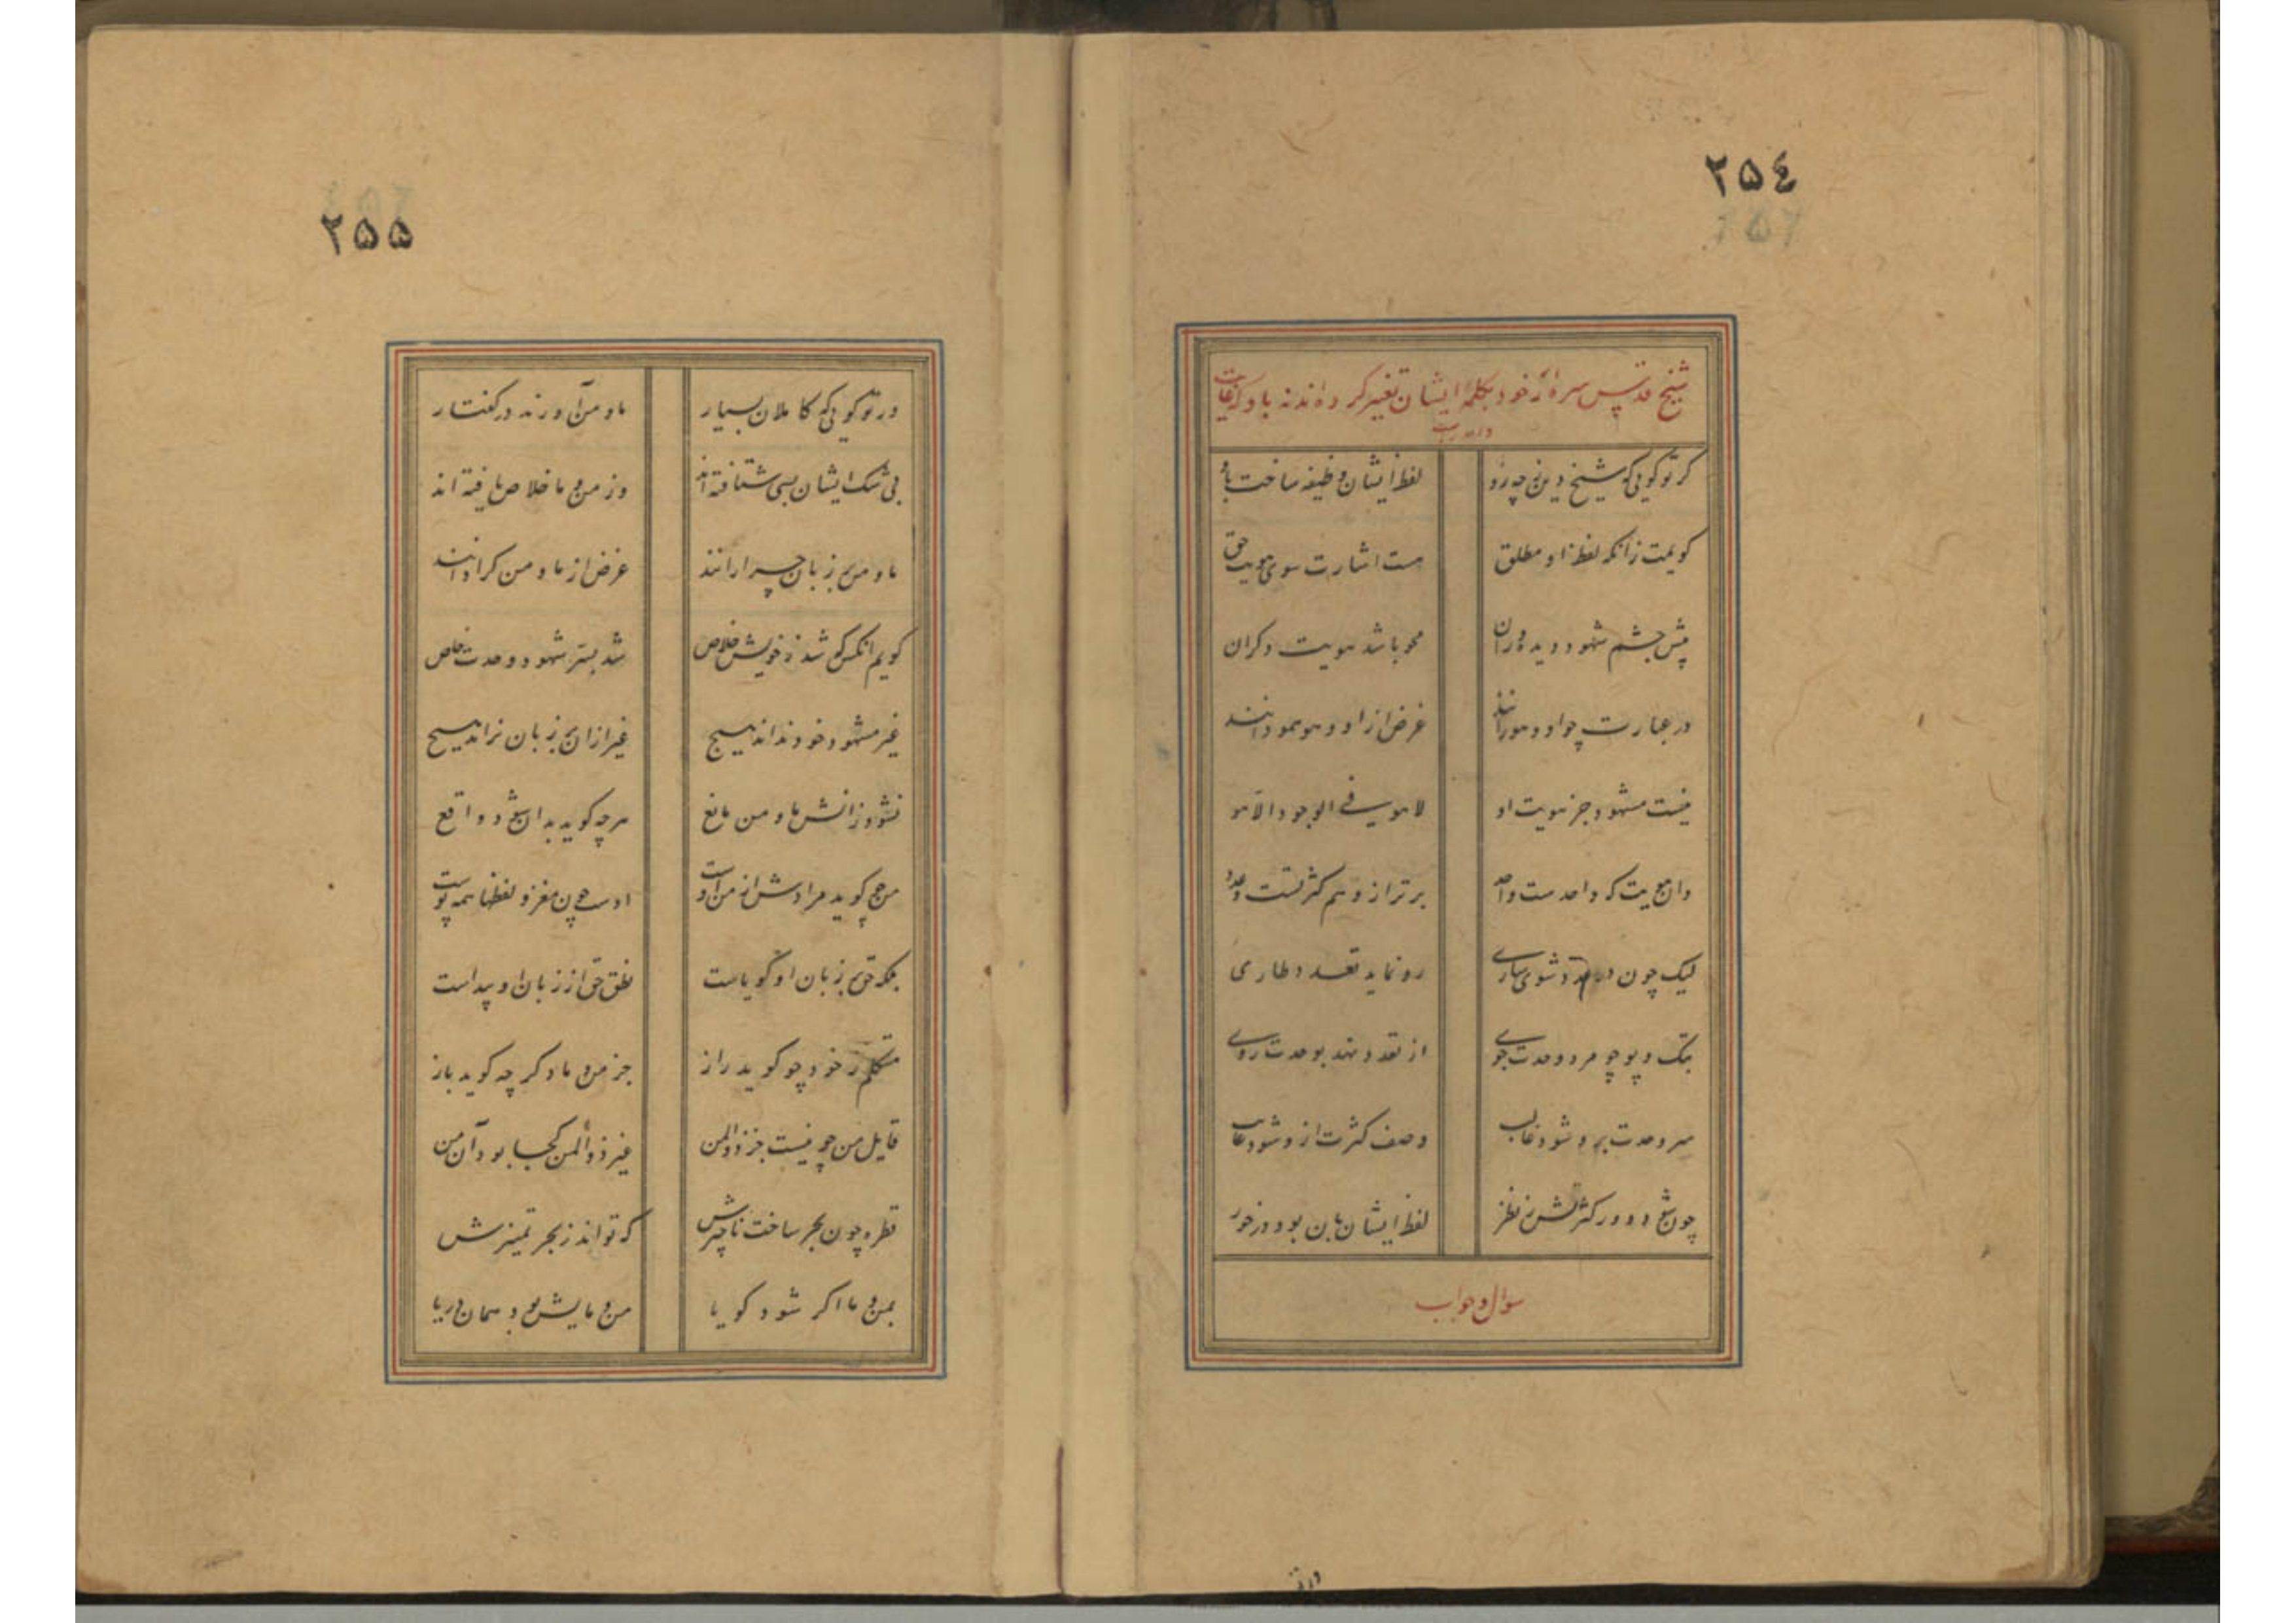 ٢٥٤
شیخ قدس سره از خود بکلمه ایشان تعبیر کرده اند نه باو که غایت
گر تو گویی که شیخ دین ز چه رو لفظ ایشان وظیفه ساخت باو
گویمت زانکه لفظ او مطلق هست اشارت سوی هویت حق
پیش چشم شهود دیده وران محو باشد هویت دگران
در عبارت چو او و هو رانند غرض از او و هو همو دانند
نیست مشهود جز هویت او لا هویة فی الوجود الا هو
وان هویت که واحد ست واحد برتر از وهم کثرتست وعدد
لیک چون در عدد شوی ساری رو نماید تعدد طاری
بتک و پو چو مرد وحدت جوی از تعدد نهد بوحدت روی
سر وحدت برو شود غالب وصف کثرت ازو شود غایب
چون شود دور کثرتش ز نظر لفظ ایشان بان بود درخور
سوال و جواب
در تو
٢٥٥
ور تو گویی که کاملان بسیار ما و من آورند در گفتار
بی شک ایشان بسی شتافته اند وز من و ما خلاص یافته اند
ما و من بر زبان چرا رانند غرض از ما و من کرا دانند
گویم انکس که شد ز خویش خلاص شد بستر شهود وحدت خاص
غیر مشهود خود نداند هیچ غیر ازان بر زبان نراند هیچ
نشود زانش ما و من مانع هرچه گوید بدان شود واقع
من چو گوید مرادش از من اوست اوست چون مغز و لفظها همه پوست
بلکه حق بر زبان او گویاست نطق حق از زبان او پیداست
متکلم ز خود چو گوید راز جز من و ما دگر چه گوید باز
قایل من چو نیست جز ذو المن غیر ذو المن کجا بود آن من
قطره چون بحر ساخت ناچیزش که تواند ز بحر تمییزش
بمن و ما اگر شود گویا من و مایش بود همان دریا